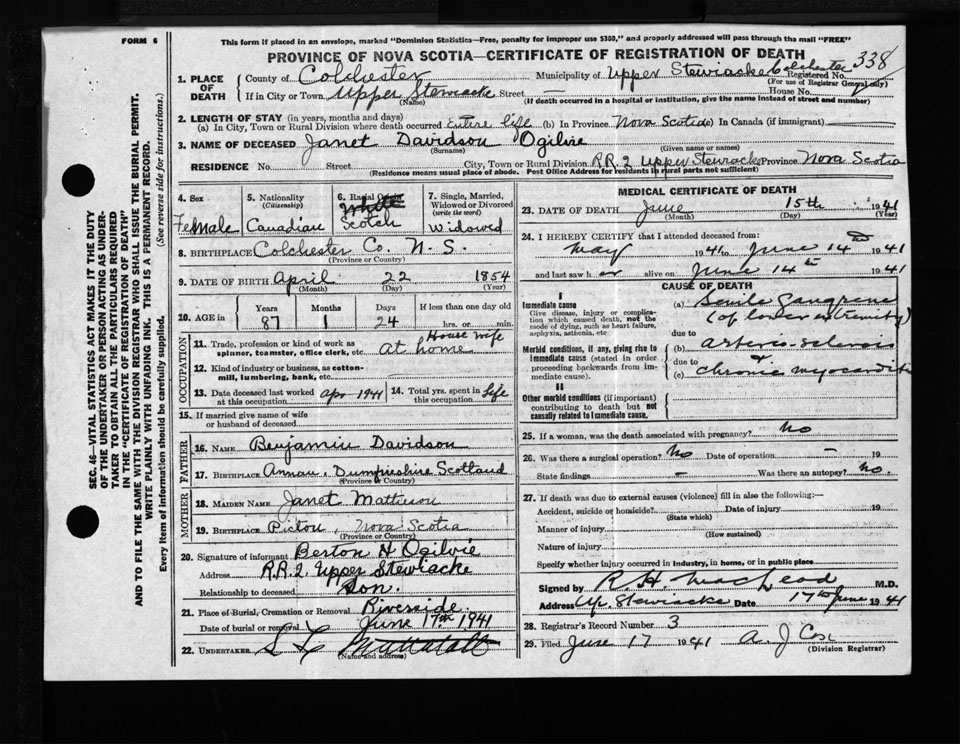 FORM 6
This form if placed in an envelope, marked "Dominion Statistics—Free, penalty for improper use $300," and properly addressed will pass through the mail "FREE"
PROVINCE OF NOVA SCOTIA—CERTIFICATE OF REGISTRATION OF DEATH
338
1. PLACE OF DEATH
County of Colchester Municipality of Upper Stewiacke Colchester Registered No.
(For use of Registrar General only)
If in City or Town Upper Stewiacke Street — House No.
(Name) (If death occurred in a hospital or institution, give the name instead of street and number)
2. LENGTH OF STAY (in years, months and days)
(a) In City, Town or Rural Division where death occurred Entire life (b) In Province Nova Scotia (c) In Canada (if immigrant)
3. NAME OF DECEASED Janet Davidson Ogilvie
(Surname) (Given name or names)
RESIDENCE No. Street City, Town or Rural Division R.R.2 Upper Stewiacke Province Nova Scotia
(Residence means usual place of abode. Post Office Address for residents in rural parts not sufficient)
4. Sex
Female
5. Nationality
(Citizenship)
Canadian
6. Racial Origin
White
Scotch
7. Single, Married, Widowed or Divorced
(write the word)
Widowed
8. BIRTHPLACE Colchester Co. N.S.
(Province or Country)
9. DATE OF BIRTH April 22 1854
(Month) (Day) (Year)
10. AGE in Years Months Days If less than one day old
87 1 24 hrs. or min.
OCCUPATION
11. Trade, profession or kind of work as spinner, teamster, office clerk, etc. House wife
At home
12. Kind of industry or business, as cotton-mill, lumbering, bank, etc.
13. Date deceased last worked at this occupation Apr 1941
14. Total yrs. spent in this occupation Life
15. If married give name of wife or husband of deceased
FATHER
16. NAME Benjamin Davidson
17. BIRTHPLACE Annan, Dumfrieshire Scotland
(Province or Country)
MOTHER
18. MAIDEN NAME Janet
19. BIRTHPLACE Pictou, Nova Scotia
(Province or Country)
20. Signature of informant Berton H Ogilvie
Address R.R.2. Upper Stewiacke
Relationship to deceased Son.
21. Place of Burial, Cremation or Removal Riverside
Date of burial or removal June 17th 1941
22. UNDERTAKER
(Name and address)
MEDICAL CERTIFICATE OF DEATH
23. DATE OF DEATH June 15th 1941
(Month) (Day) (Year)
24. I HEREBY CERTIFY that I attended deceased from:
May 1941 to June 14th 1941
and last saw her alive on June 14th 1941
CAUSE OF DEATH
I
Immediate cause
Give disease, injury or complication which caused death, not the mode of dying, such as heart failure, asphyxia, asthenia, etc
(a) Senile Gangrene
(of lower extremity)
due to
Morbid conditions, if any, giving rise to immediate cause (stated in order proceeding backwards from immediate cause).
(b) arterio-sclerosis
due to &
(c) chronic myocarditis
II
Other morbid conditions (if important) contributing to death but not causally related to immediate cause.
25. If a woman, was the death associated with pregnancy? No
26. Was there a surgical operation? No Date of operation — 19
State findings — Was there an autopsy? No.
27. If death was due to external causes (violence) fill in also the following:—
Accident, suicide or homicide? Date of injury 19
(State which)
Manner of injury
(How sustained)
Nature of injury
Specify whether injury occurred in industry, in home, or in public place
Signed by R. H. MacLeod M.D.
Address Up. Stewiacke Date 17th June 1941
28. Registrar's Record Number 3
29. Filed June 17 1941 A. J Cox
(Division Registrar)
SEC. 46—VITAL STATISTICS ACT MAKES IT THE DUTY
OF THE UNDERTAKER OR PERSON ACTING AS UNDER-
TAKER TO OBTAIN ALL THE PARTICULARS REQUIRED
IN THE "CERTIFICATE OF REGISTRATION OF DEATH"
AND TO FILE THE SAME WITH THE DIVISION REGISTRAR WHO SHALL ISSUE THE BURIAL PERMIT.
WRITE PLAINLY WITH UNFADING INK. THIS IS A PERMANENT RECORD.
Every item of information should be carefully supplied. (See reverse side for instructions.)